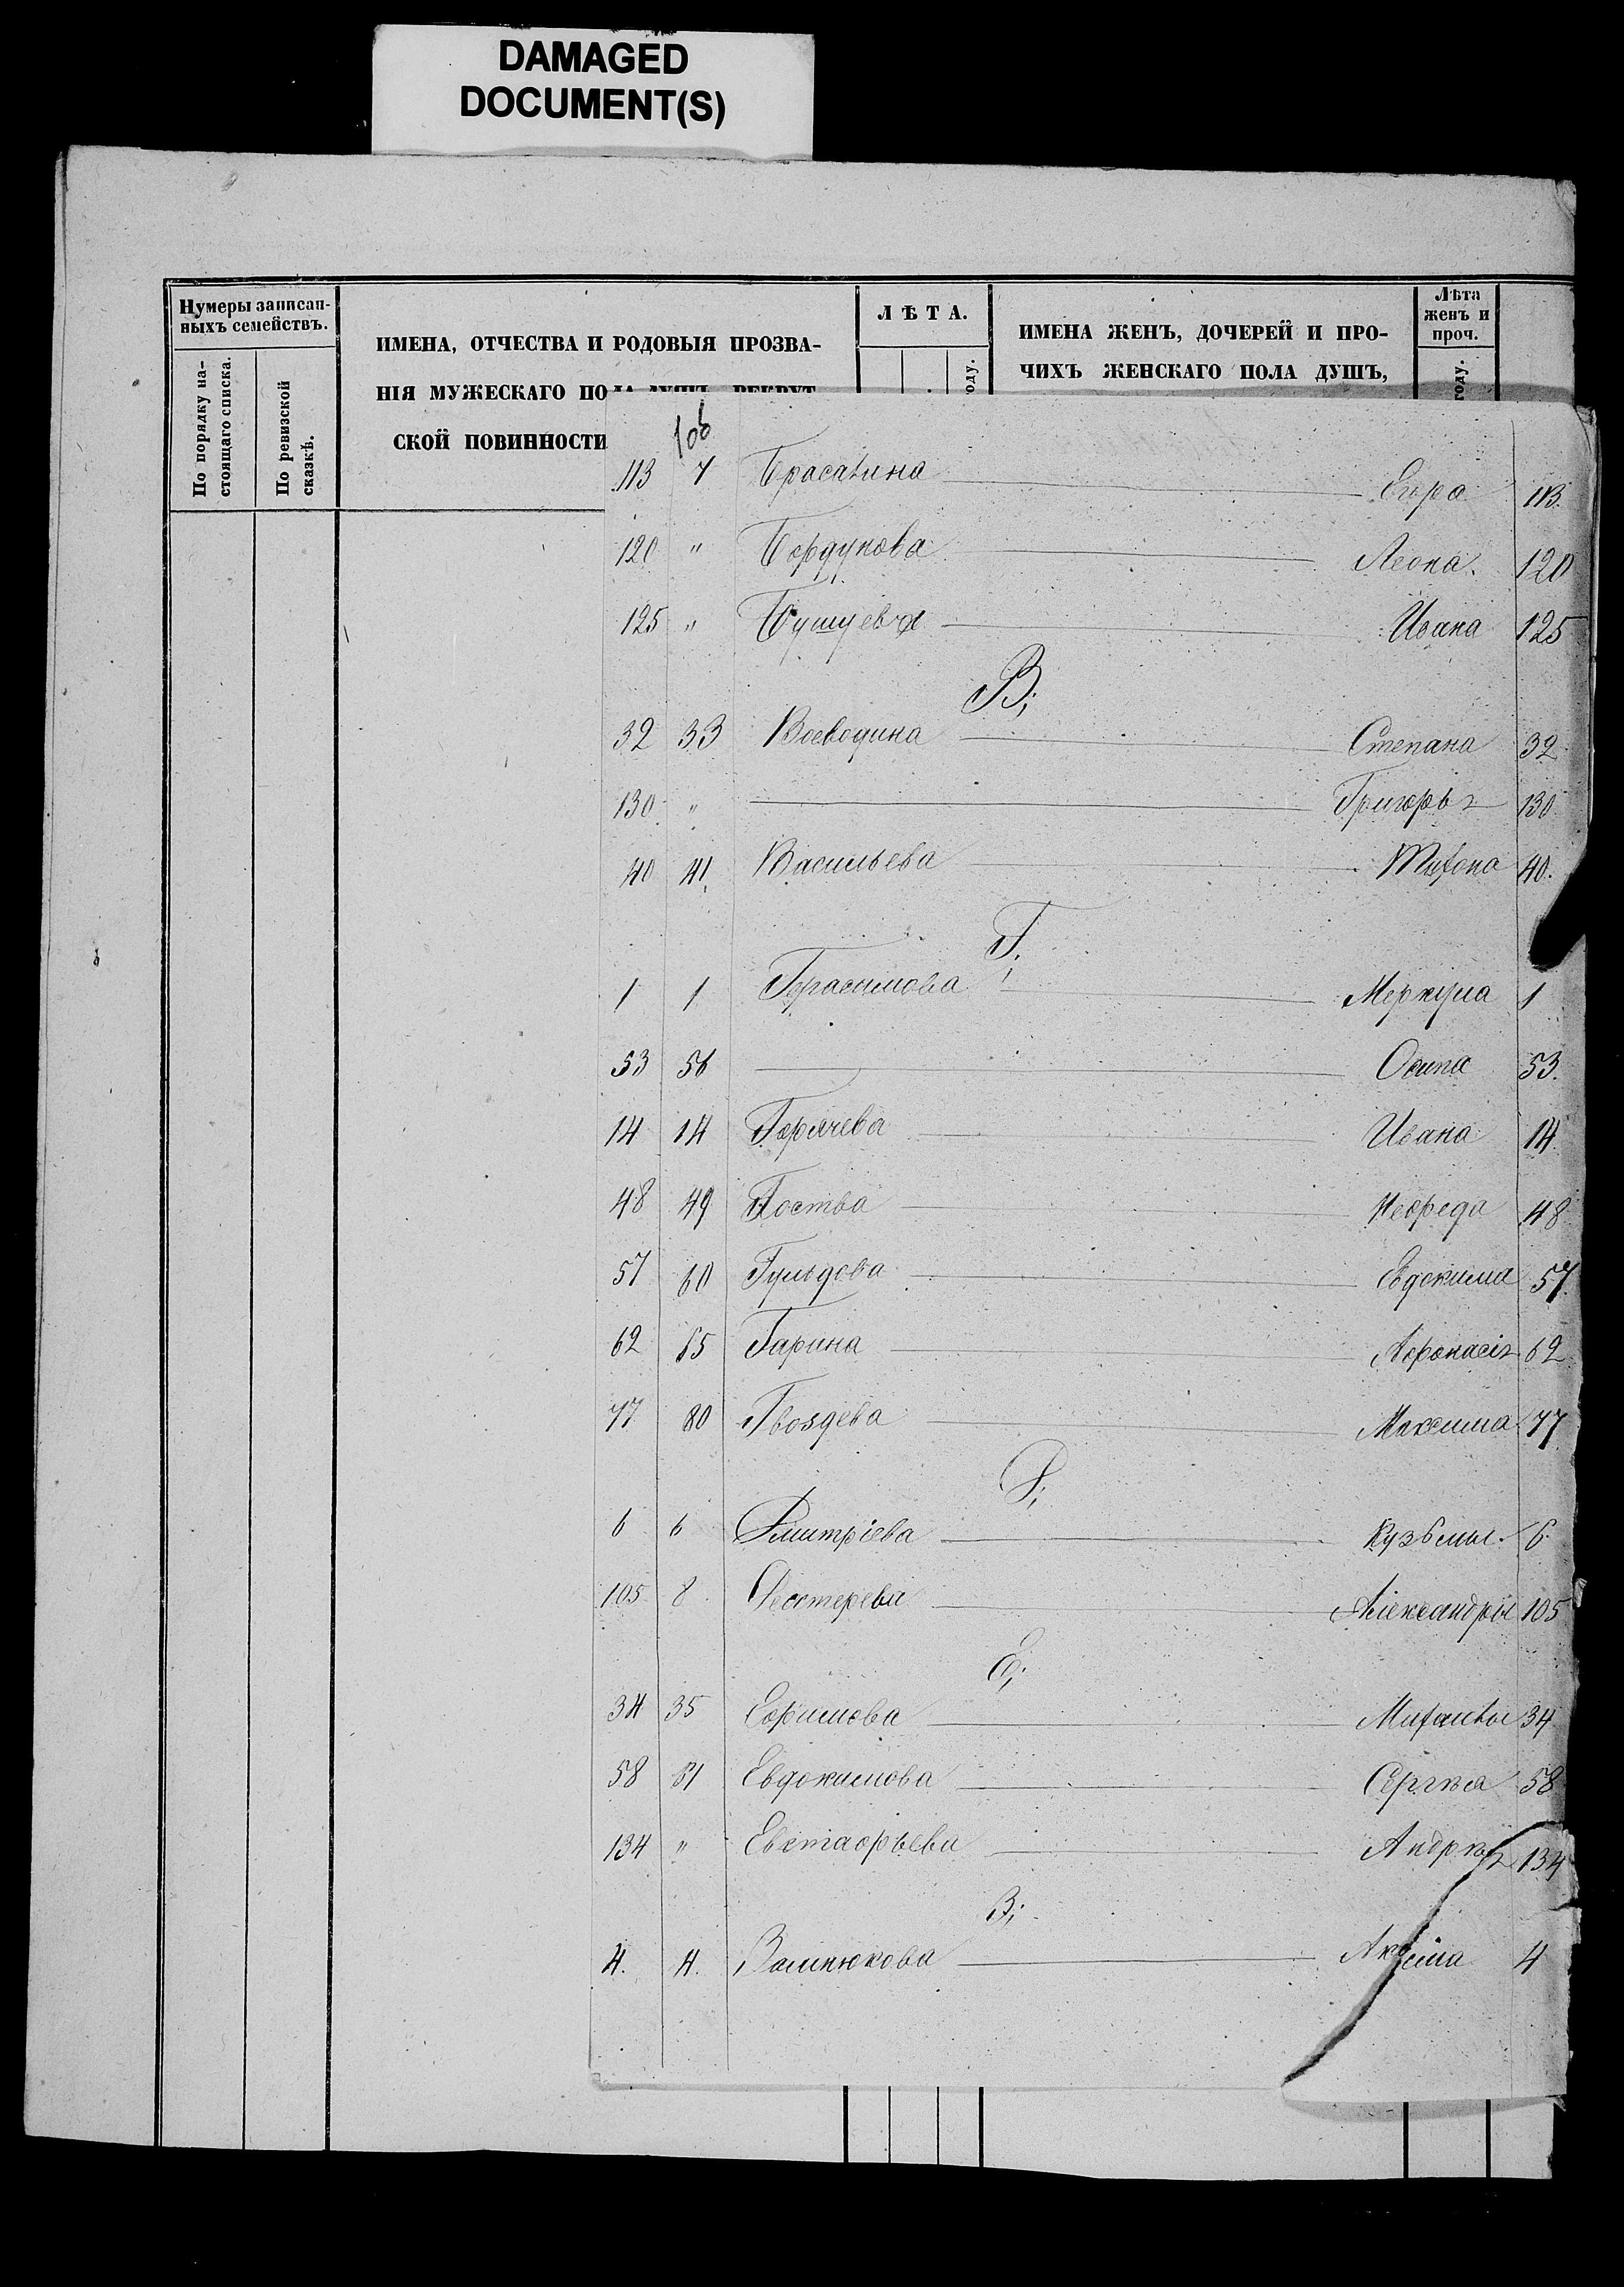 DAMAGED
DOCUMENT(S)
Нумеры записан-
ныхъ семействъ.
По порядку на-
стоящаго списка.
По ревизской
сказкѣ.
ИМЕНА, ОТЧЕСТВА И РОДОВЫЯ ПРОЗВА-
НІЯ МУЖЕСКАГО ПОЛА ДУШЪ, РЕКРУТ
СКОЙ ПОВИННОСТИ
ЛѢТА.
оду.
ИМЕНА ЖЕНЪ, ДОЧЕРЕЙ И ПРО-
ЧИХЪ ЖЕНСКАГО ПОЛА ДУШЪ,
Лѣта
женъ и
проч.
году.
106
113 7 Брасатина Егора 113.
120 " Бордунова Леона. 120
125 " Бушуева Ивана 125
В;
32 33 Воеводина Степана 32
130 " Григорья 130
40 41 Васильева 40.
Г;
1 1 Герасимова Меркула 1
53 56 Осипа 53.
14 14 Горячева Ивана 14
48 49 Нефеда 48
57 60 Гульдова Евдокима 57.
62 65 Гарина Афонасія 62
77 80 Гвоздева Максима 77
Д;
6 6 Дмитріева Кузьмы. 6
105 8 Дехтерева Александры 105
Е;
34 35 Ефимова Михаилы 34
58 61 Евдокимова Сергѣя 58
134 " Евстафьева Андрѣя 134
З;
4. 4. Замнюкова Акима 4